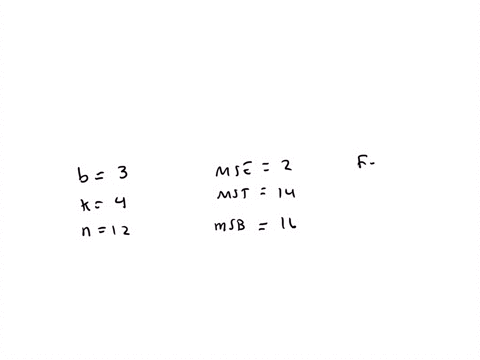 b = 3 MSE = 2 F-
k = 4 MST = 14
n = 12 MSB = 16